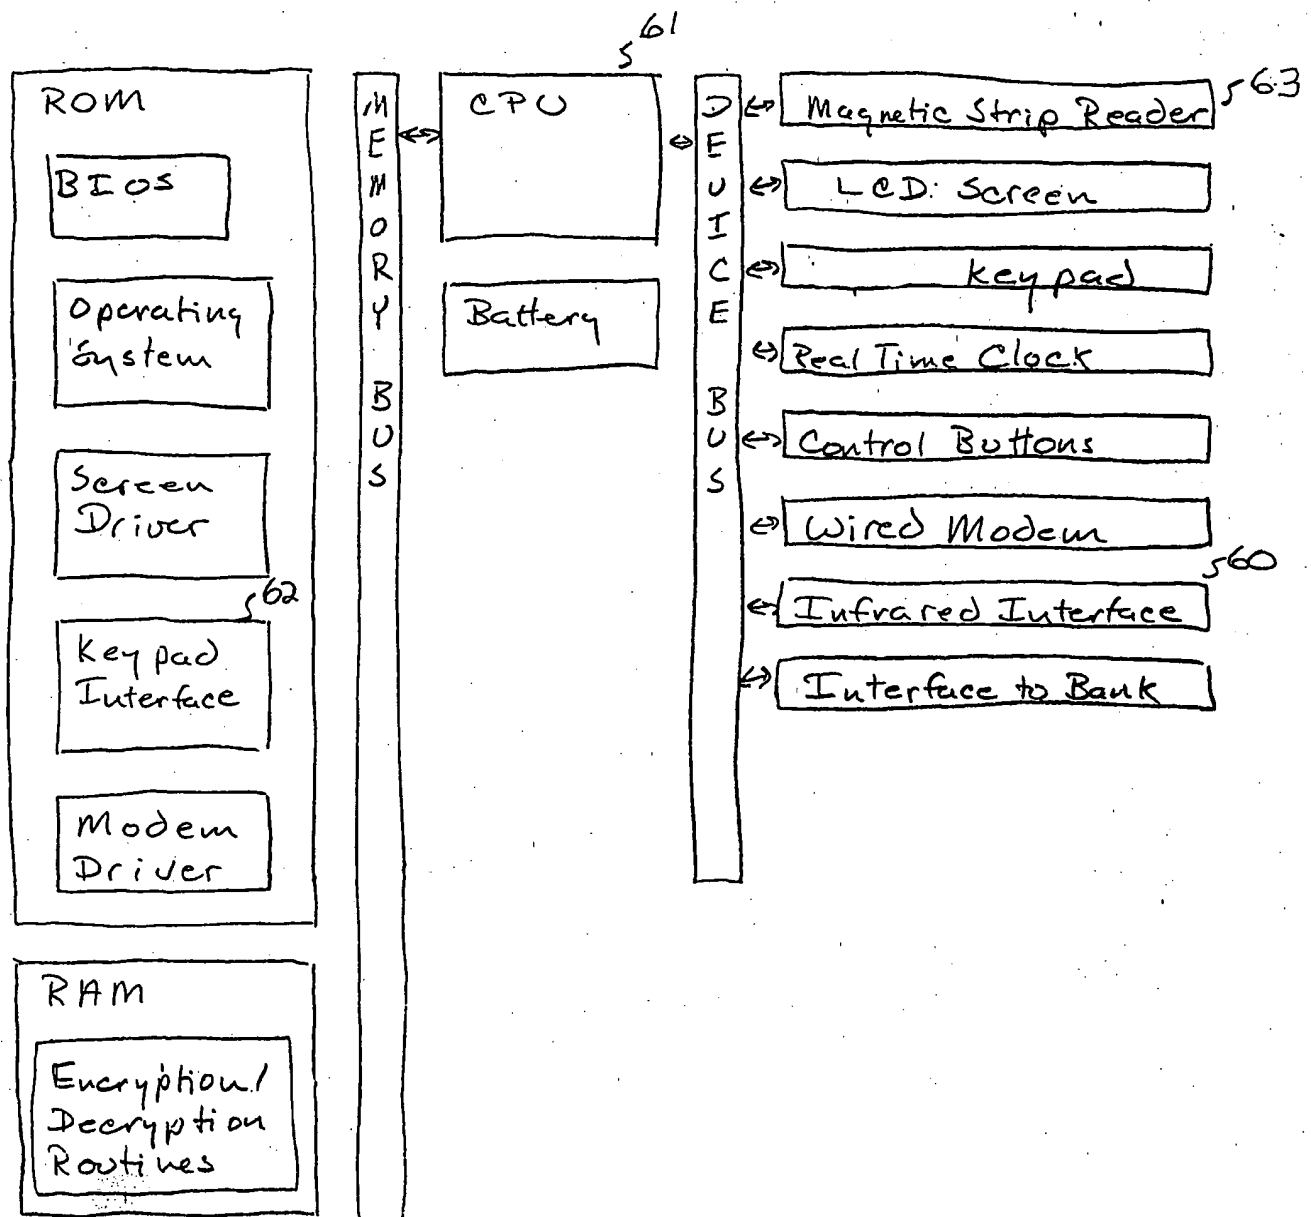 61
63
ROM
BIOS
Operating
System
Screen
Driver
62
Keypad
Interface
Modem
Driver
RAM
Encryption/
Decryption
Routines
MEMORY BUS
CPU
Battery
DEVICE BUS
Magnetic Strip Reader
LCD: Screen
Keypad
Real Time Clock
Control Buttons
Wired Modem
60
Infrared Interface
Interface to Bank